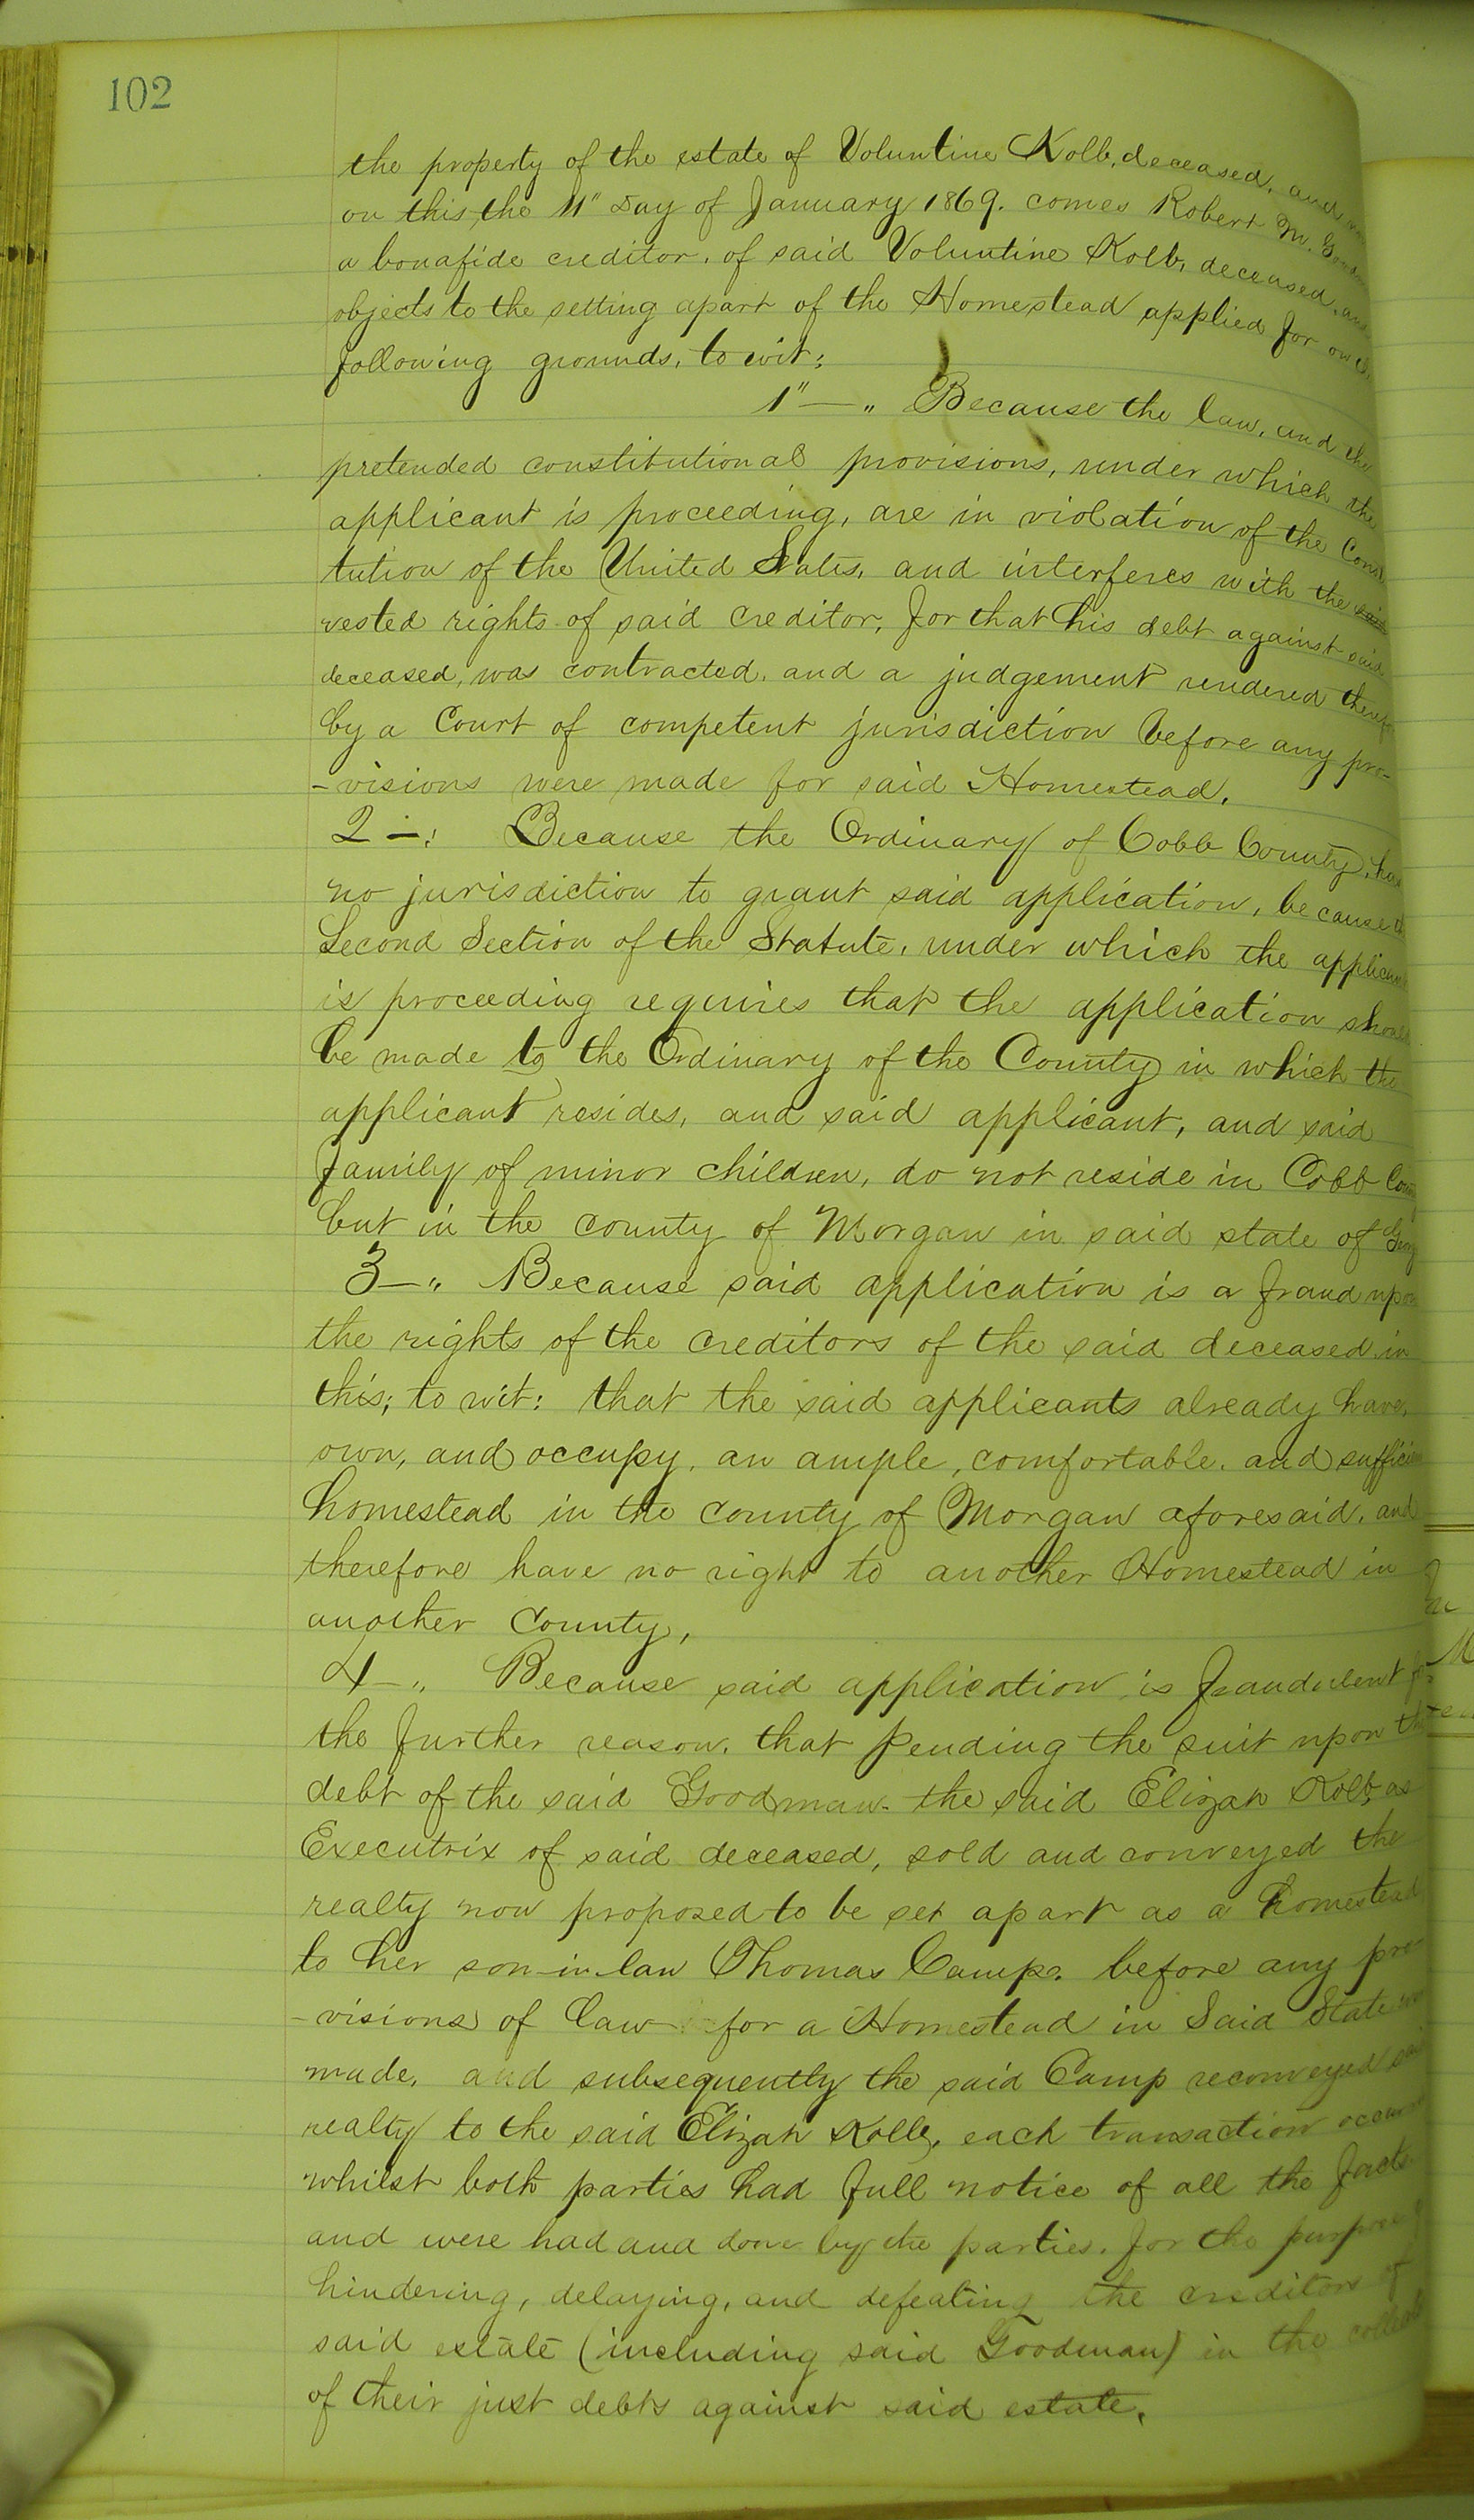 102
the property of the estate of Voluntine Kolb, deceased, and
on this, the 11" Day of January 1869. comes Robert M.
a bonafide creditor, of said Voluntine Kolb, deceased, and
objects to the setting apart of the Homestead applied for on
following grounds, to wit:
1" — " Because the law, and the
pretended constitutional provisions, under which the
applicant is proceeding, are in violation of the Const
tution of the United States, and interferes with the
vested rights of said creditor, for that his debt against said
deceased, was contracted, and a judgement rendered
by a Court of competent jurisdiction before any pro-
-visions were made for said Homestead.
2 —: Because the Ordinary of Cobb County, has
no jurisdiction to grant said application, because
Second Section of the Statute, under which the applicant
is proceeding requires that the application should
be made to the Ordinary of the County in which the
applicant resides, and said applicant, and said
family of minor children, do not reside in Cobb
but in the county of Morgan in said state of
3 — " Because said application is a fraud upon
the rights of the creditors of the said deceased in
this; to wit: that the said applicants already have,
own, and occupy, an ample, comfortable, and
homestead in the county of Morgan aforesaid, and
therefore have no right to another Homestead in
another County,
4 — " Because said application is fraudulent for
the further reason, that pending the suit upon the
debt of the said Goodman. the said Elizah Kolb, as
Executrix of said deceased, sold and conveyed the
realty now proposed to be set apart as a homestead
to her son-in-law Thomas Camp. before any pro-
-visions of law for a Homestead in Said State
made, and subsequently the said Camp reconveyed said
realty to the said Elizah Kolb, each transaction
whilst both parties had full notice of all the facts
and were had and done by the parties, for the purpose
hindering, delaying, and defeating the creditors of
said estate (including said Goodman) in the
of their just debts against said estate.